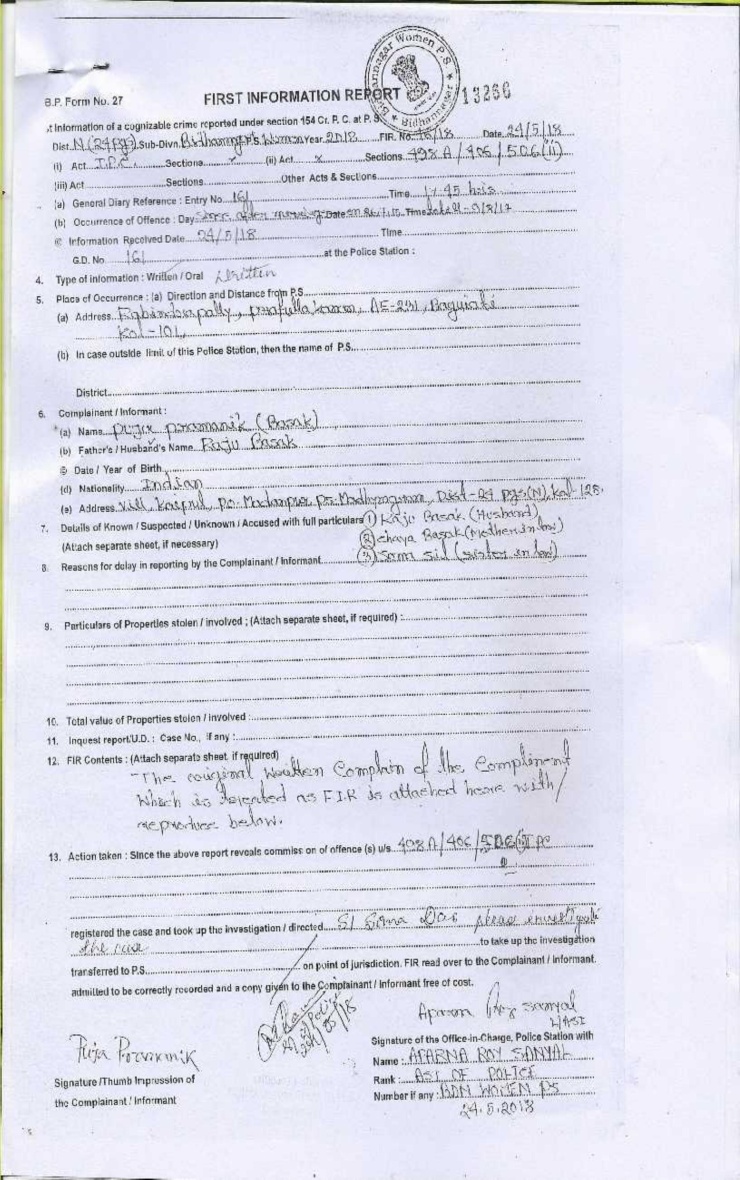 Bidhannagar Women P.S.
Bidhannagar
B.P. Form No. 27
FIRST INFORMATION REPORT
13266
Information of a cognizable crime reported under section 154 Cr. P. C. at P. S.
Dist. N (24 Pgs) Sub-Divn. Bidhannagar P.S. Women Year 2018 FIR. No. /18 Date 24/5/18
(i) Act I.P.C. Sections (ii) Act x Sections 498A/406/506(ii)
(iii) Act Sections Other Acts & Sections
(a) General Diary Reference : Entry No. 161 Time 17.45 hrs
(b) Occurrence of Offence : Day Since after Date Time
© Information Received Date 24/5/18 Time
G.D. No. 161 at the Police Station :
4. Type of information : Written / Oral Written
5. Place of Occurrence : (a) Direction and Distance from P.S.
(a) Address AE-231, Baguiati
Kol-101,
(b) In case outside limit of this Police Station, then the name of P.S.
District
6. Complainant / Informant :
(a) Name Puja Pramanik (Basak)
(b) Father's / Husband's Name Raju Basak
© Date / Year of Birth
(d) Nationality Indian
(e) Address Vill, PS. Madhyamgram, Dist-24 pgs(N), Kol-128.
7. Details of Known / Suspected / Unknown / Accused with full particulars (1) Raju Basak. (Husband)
(2) chaya Basak (Mother in law)
(Attach separate sheet, if necessary)
(3) Soma Sil (sister in law)
8. Reasons for delay in reporting by the Complainant / Informant
9. Particulars of Properties stolen / involved ; (Attach separate sheet, if required) :
10. Total value of Properties stolen / involved :
11. Inquest report/U.D. : Case No., if any :
12. FIR Contents : (Attach separate sheet, if required)
"The original written Complain of the Complinent
which is treated as F.I.R is attached here with/
reproduce below.
13. Action taken : Since the above report reveals commission of offence (s) u/s 498A/406/506(ii) IPC
registered the case and took up the investigation / directed SI Soma Das please investigate
the case to take up the investigation
transferred to P.S. on point of jurisdiction. FIR read over to the Complainant / Informant.
admitted to be correctly recorded and a copy given to the Complainant / Informant free of cost.
Aparna Roy Sanyal
L/ASI
Puja Pramanik
Signature of the Office-in-Charge, Police Station with
Name : APARNA ROY SANYAL
Signature /Thumb Impression of
Rank : ASI OF POLICE
the Complainant / Informant
Number if any : BDN WOMEN PS
24.5.2018